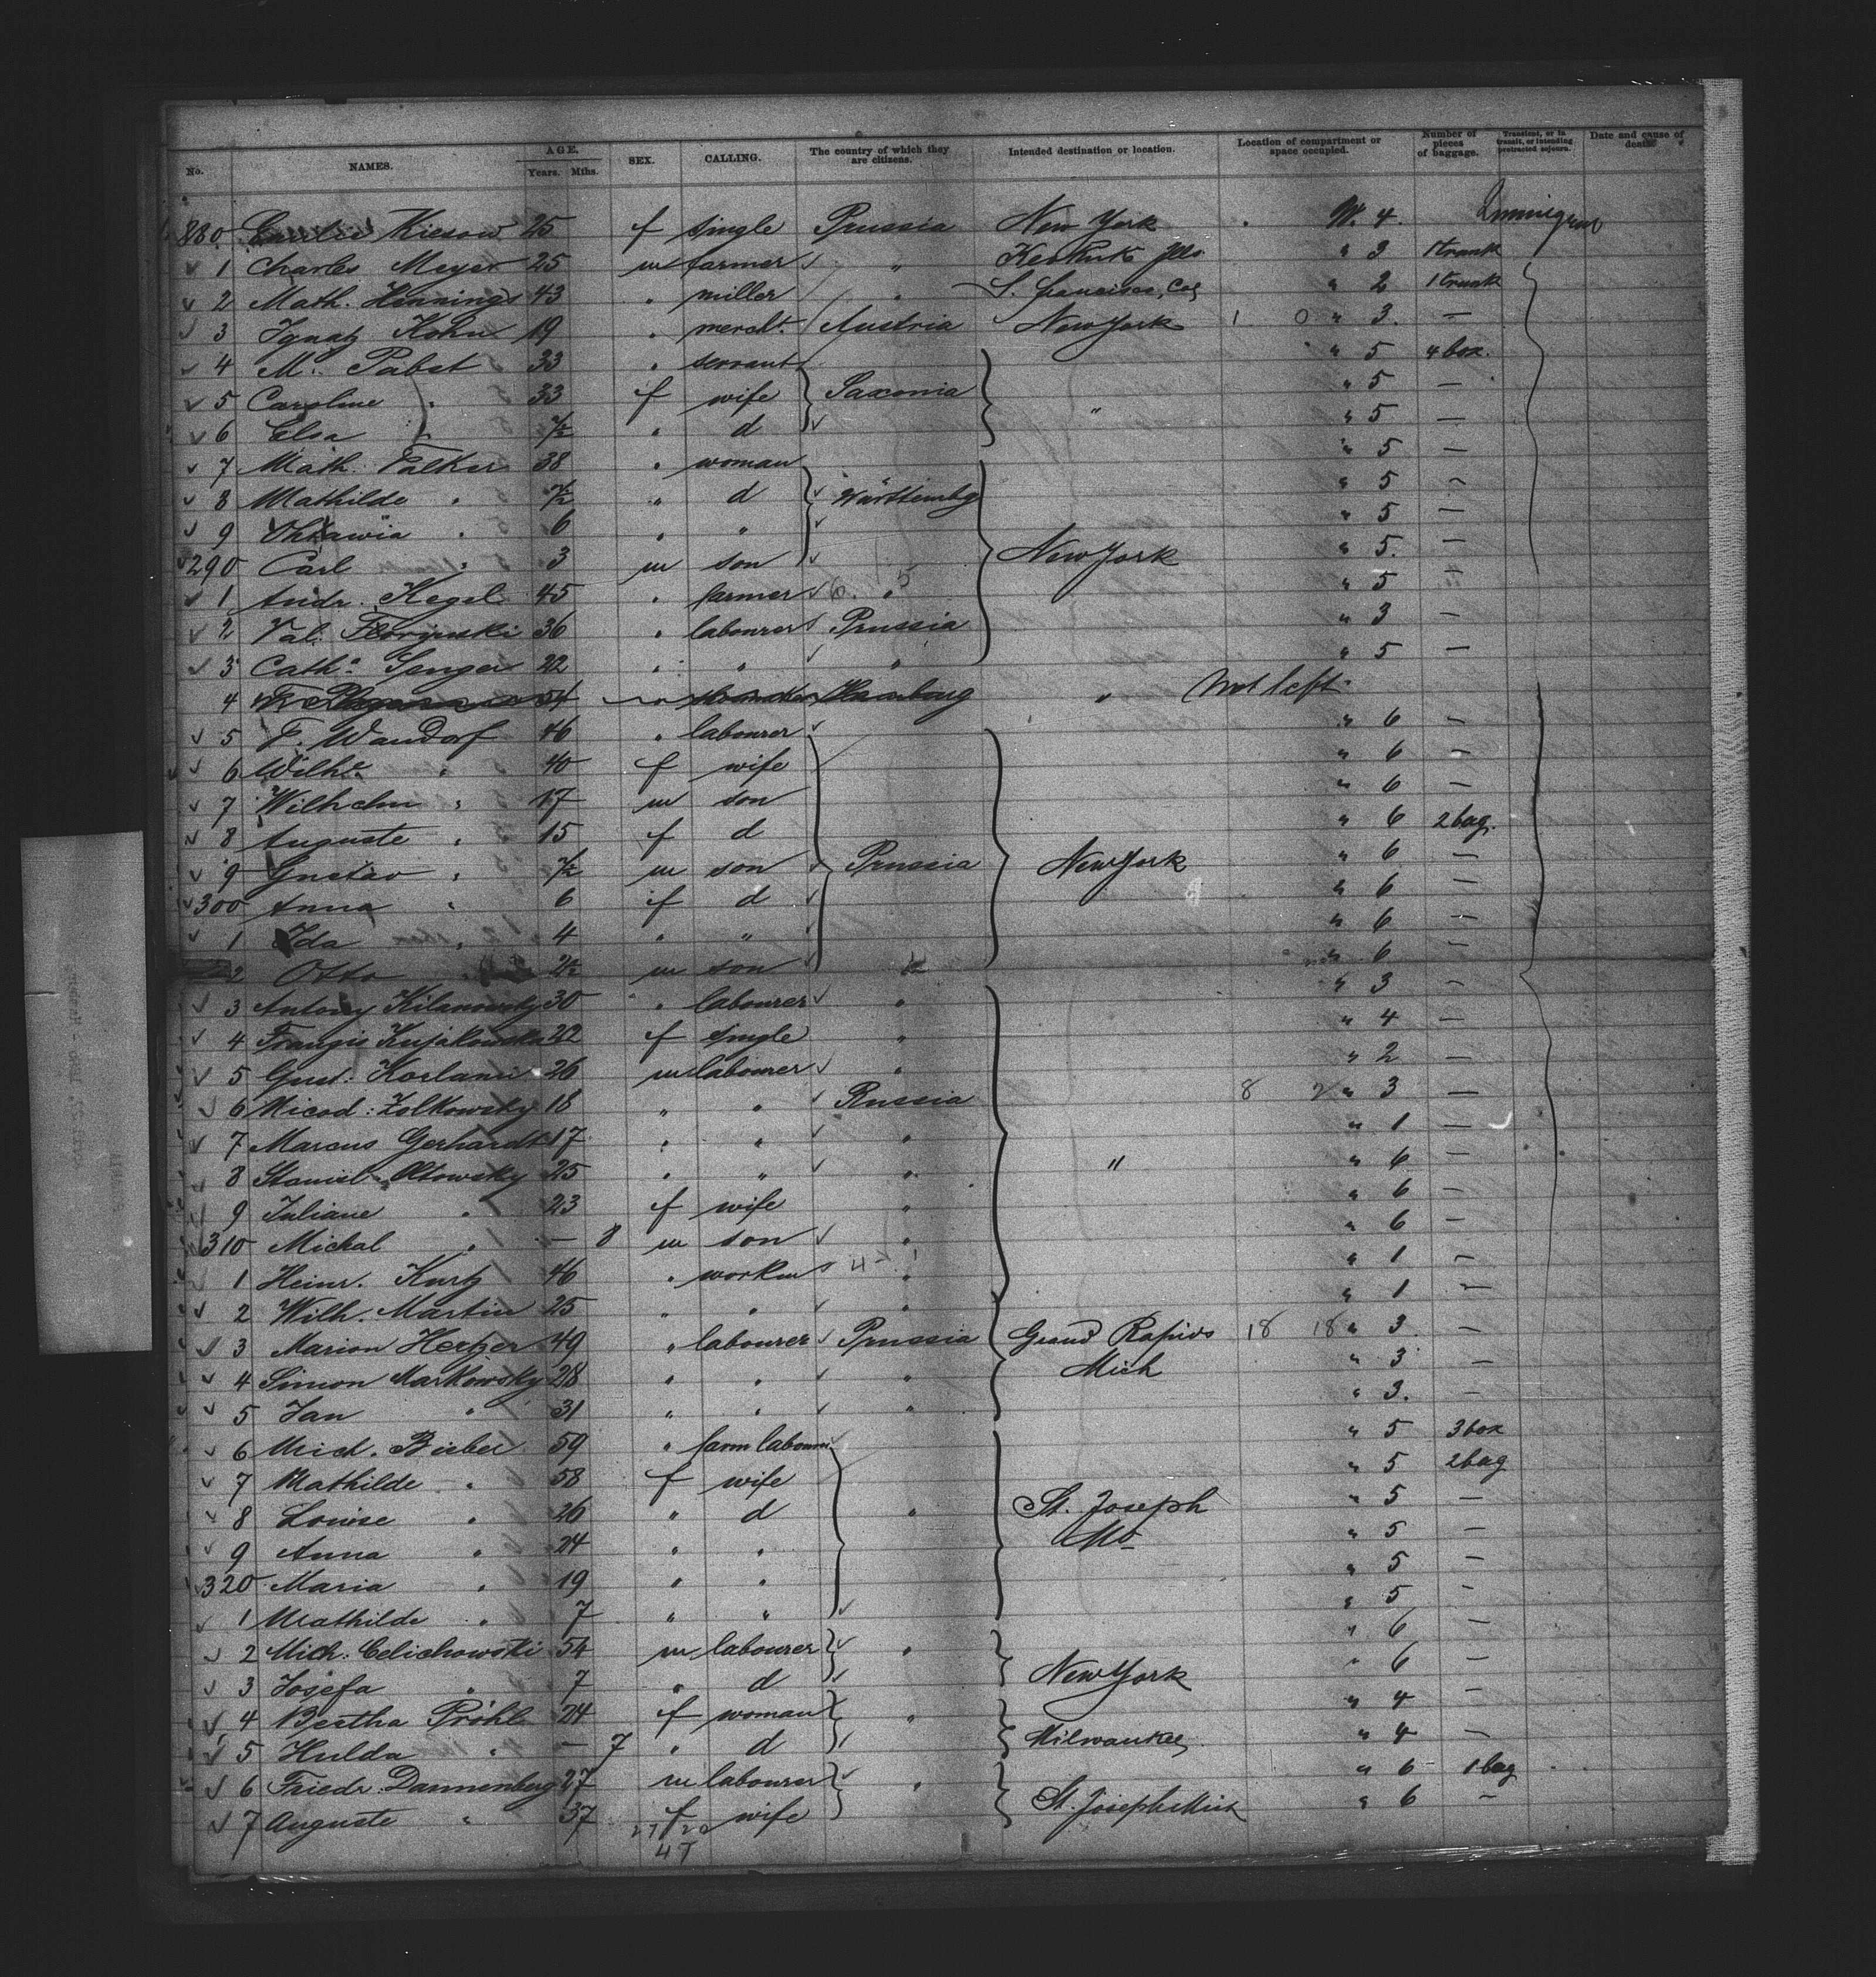 No. NAMES. AGE. Years. Mths. SEX. CALLING. The country of which they are citizens. Intended destination or location. Location of compartment or space occupied. Number of pieces of baggage. Transient, or in transit, or intending protracted sojourn. Date and cause of death
280 Kiesow 25 f single Prussia New York W. 4. Immigrant
1 Charles Meyer 25 m farmer " Ills " 3 1 trunk
2 Math. Hennings 43 " miller " S. Francisco, Cal " 2 1 trunk
3 Ignatz Kohn 19 " mercht. Austria New York 1 0 " 3. —
4 M. Pabst 33 " servant " 5 4 box.
5 Caroline " 33 f wife Saxonia " 5 —
6 Elsa " " d " " 5 —
7 Math. Falker 38 " woman " 5 —
8 Mathilde " " d Württembg " 5 —
9 " 6 " " " 5 —
290 Carl " 3 m son New York " 5. —
1 Andr. Kegel 45 " farmer " " 5
2 Val. 36 " labourer Prussia " 3 —
3 Cath. Senger 22 " " " " 5 —
4 54 Hamburg " Not left
5 F. Wandorf 46 " labourer " 6 —
6 Wilhe. " 40 f wife " 6 —
7 Wilhelm " 17 m son " 6 —
8 Auguste " 15 f d " 6 2 bag.
9 Gustav " m son Prussia New York " 6 —
300 Anna " 6 f d " 6 —
1 Ida " 4 " " " 6 —
2 Otto " m son " 6 —
3 Antony Kilanowsky 30 " labourer " " 3 —
4 Kujakowska 22 f single " " 4 —
5 Gust: 26 m labourer " " 2 —
6 Nicod: Zolkowsky 18 " " Russia 8 2 " 3 —
7 Marcus Gerhardt 17 " " " " 1 —
8 Stanisl. 25 " " " " " 6 —
9 Juliane " 23 f wife " " 6 —
310 Michal " — 8 m son " " 6 —
1 Heinr. Kurtz 46 " " " 1 —
2 Wilh. Martin 25 " " " " 1 —
3 Marion Hertzer 49 " labourer Prussia Grand Rapids 18 18 " 3 —
4 Simon Markowsky 28 " " " Mich " 3 —
5 Jan " 31 " " " " 3. —
6 Mich. Bieber 59 " farm labourer " 5 3 box
7 Mathilde " 58 f wife " 5 2 bag
8 Louise " 26 " d " St. Joseph " 5 —
9 Anna " 24 " " Mo " 5 —
320 Maria " 19 " " " 5 —
1 Mathilde " 7 " " " 5 —
2 Mich: Celichowski 54 m labourer " " 6 —
3 Josefa " 7 " d New York " 6 —
4 Bertha Pröhl 24 f woman " " 4 —
5 Hulda " — 7 " d Milwaukee " 4 —
6 Friedr. Dannenberg 27 m labourer " " 6 1 bag
7 Auguste " 37 f wife St. Joseph Mich " 6 —
27/20
47